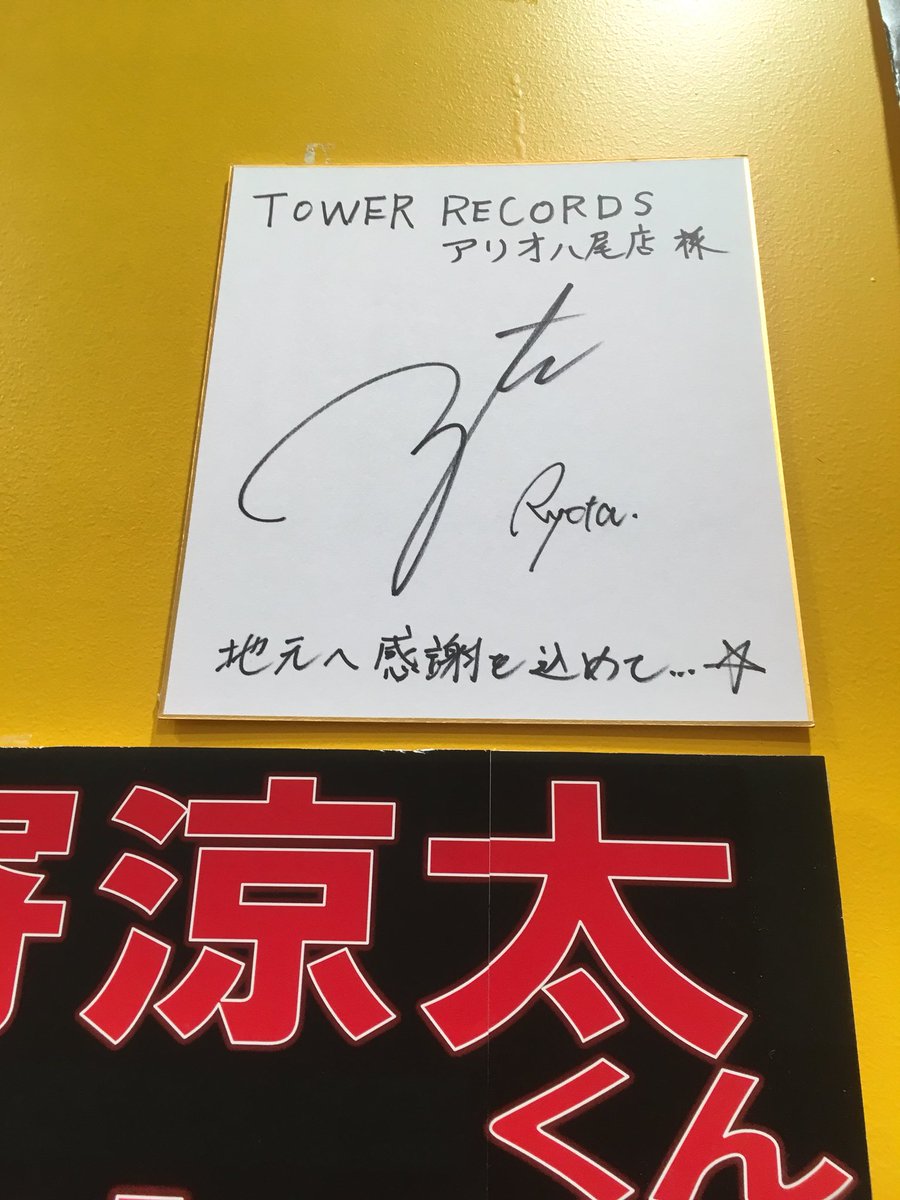 TOWER RECORDS
アリオ八尾店 様
Ryota.
地元へ感謝を込めて...☆
野涼太
くん